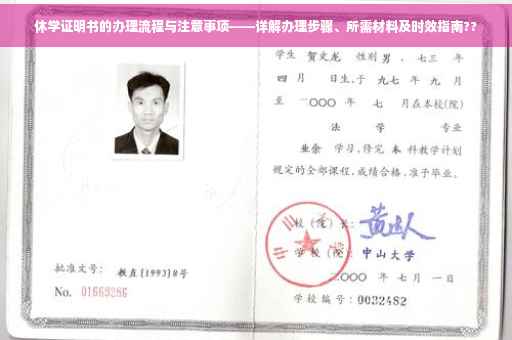 休学证明书的办理流程与注意事项——详解办理步骤、所需材料及时效指南??
学生 贺文龙 性别 男 、七三 年
四 月 日生,于 九七 年 九 月
至 二〇〇〇 年 七 月在本校(院)
法 学 专业
业余 学习,修完 本 科教学计划
规定的全部课程,成绩合格,准予毕业。
校(院)长:
学校(院): 中山大学
二〇〇〇 年 七 月 一 日
批准文号: 教直[1993]8号
No. 01669286
学校编号:0032482